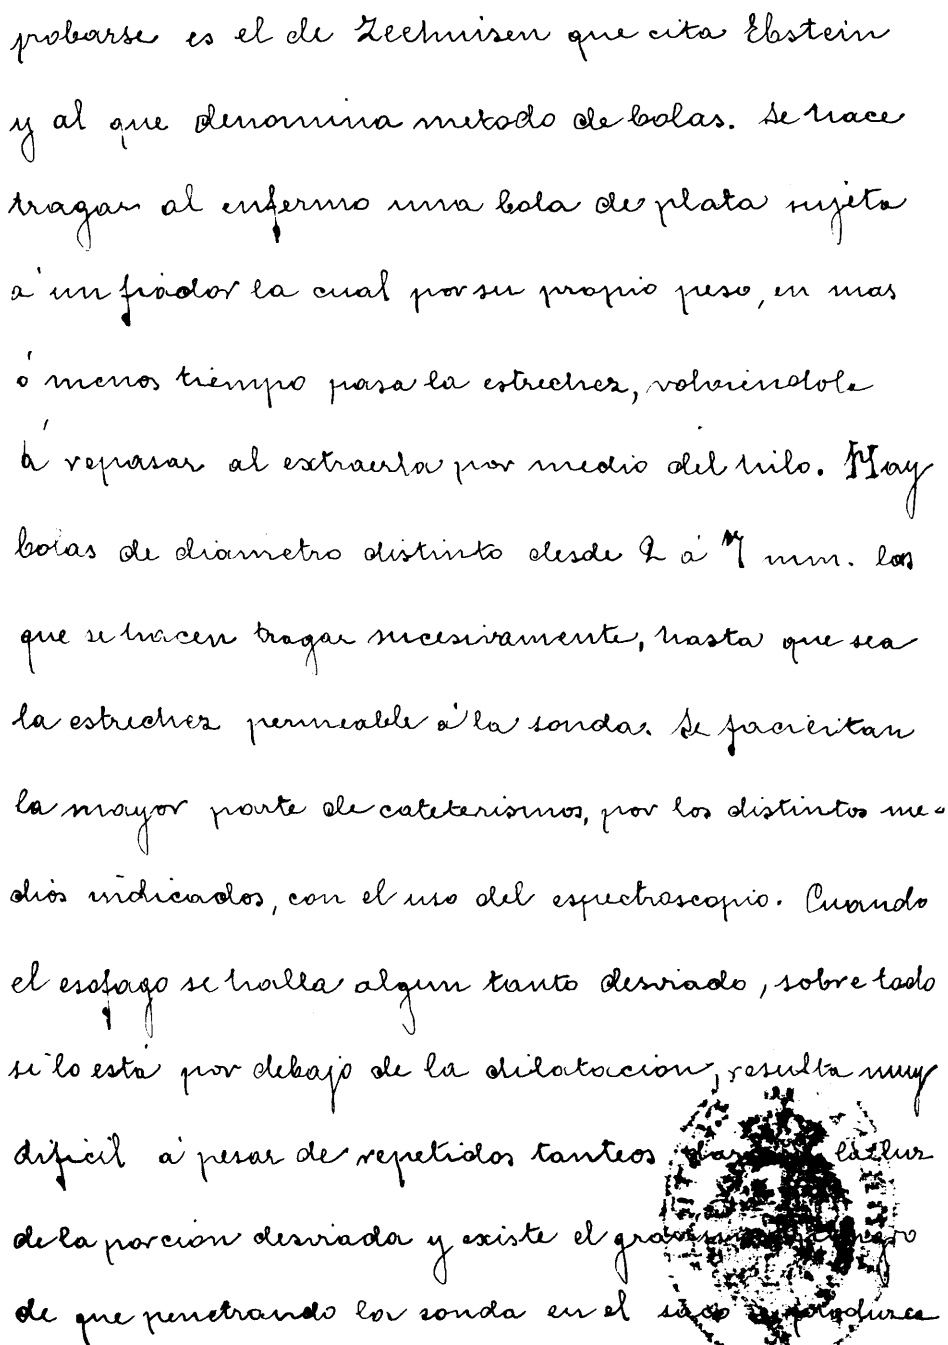 probarse es el de Zeehuisen que cita Ebstein
y al que denomina metodo de bolas. Se hace
tragar al enfermo una bola de plata sujeta
á un fiador la cual por su propio peso, en mas
ó menos tiempo pasa la estrechez, volviendole
á repasar al extraerla por medio del hilo. Hay
bolas de diametro distinto desde 2 á 7 mm. las
que se hacen tragar sucesivamente, hasta que sea
la estrechez permeable á la sonda. Se facilitan
la mayor parte de cateterismos, por los distintos me-
dios indicados, con el uso del espectroscopio. Cuando
el esofago se halla algun tanto desviado, sobre todo
si lo está por debajo de la dilatacion, resulta muy
dificil á pesar de repetidos tanteos la luz
de la porcion desviada y existe el
de que penetrando la sonda en el saco produzca